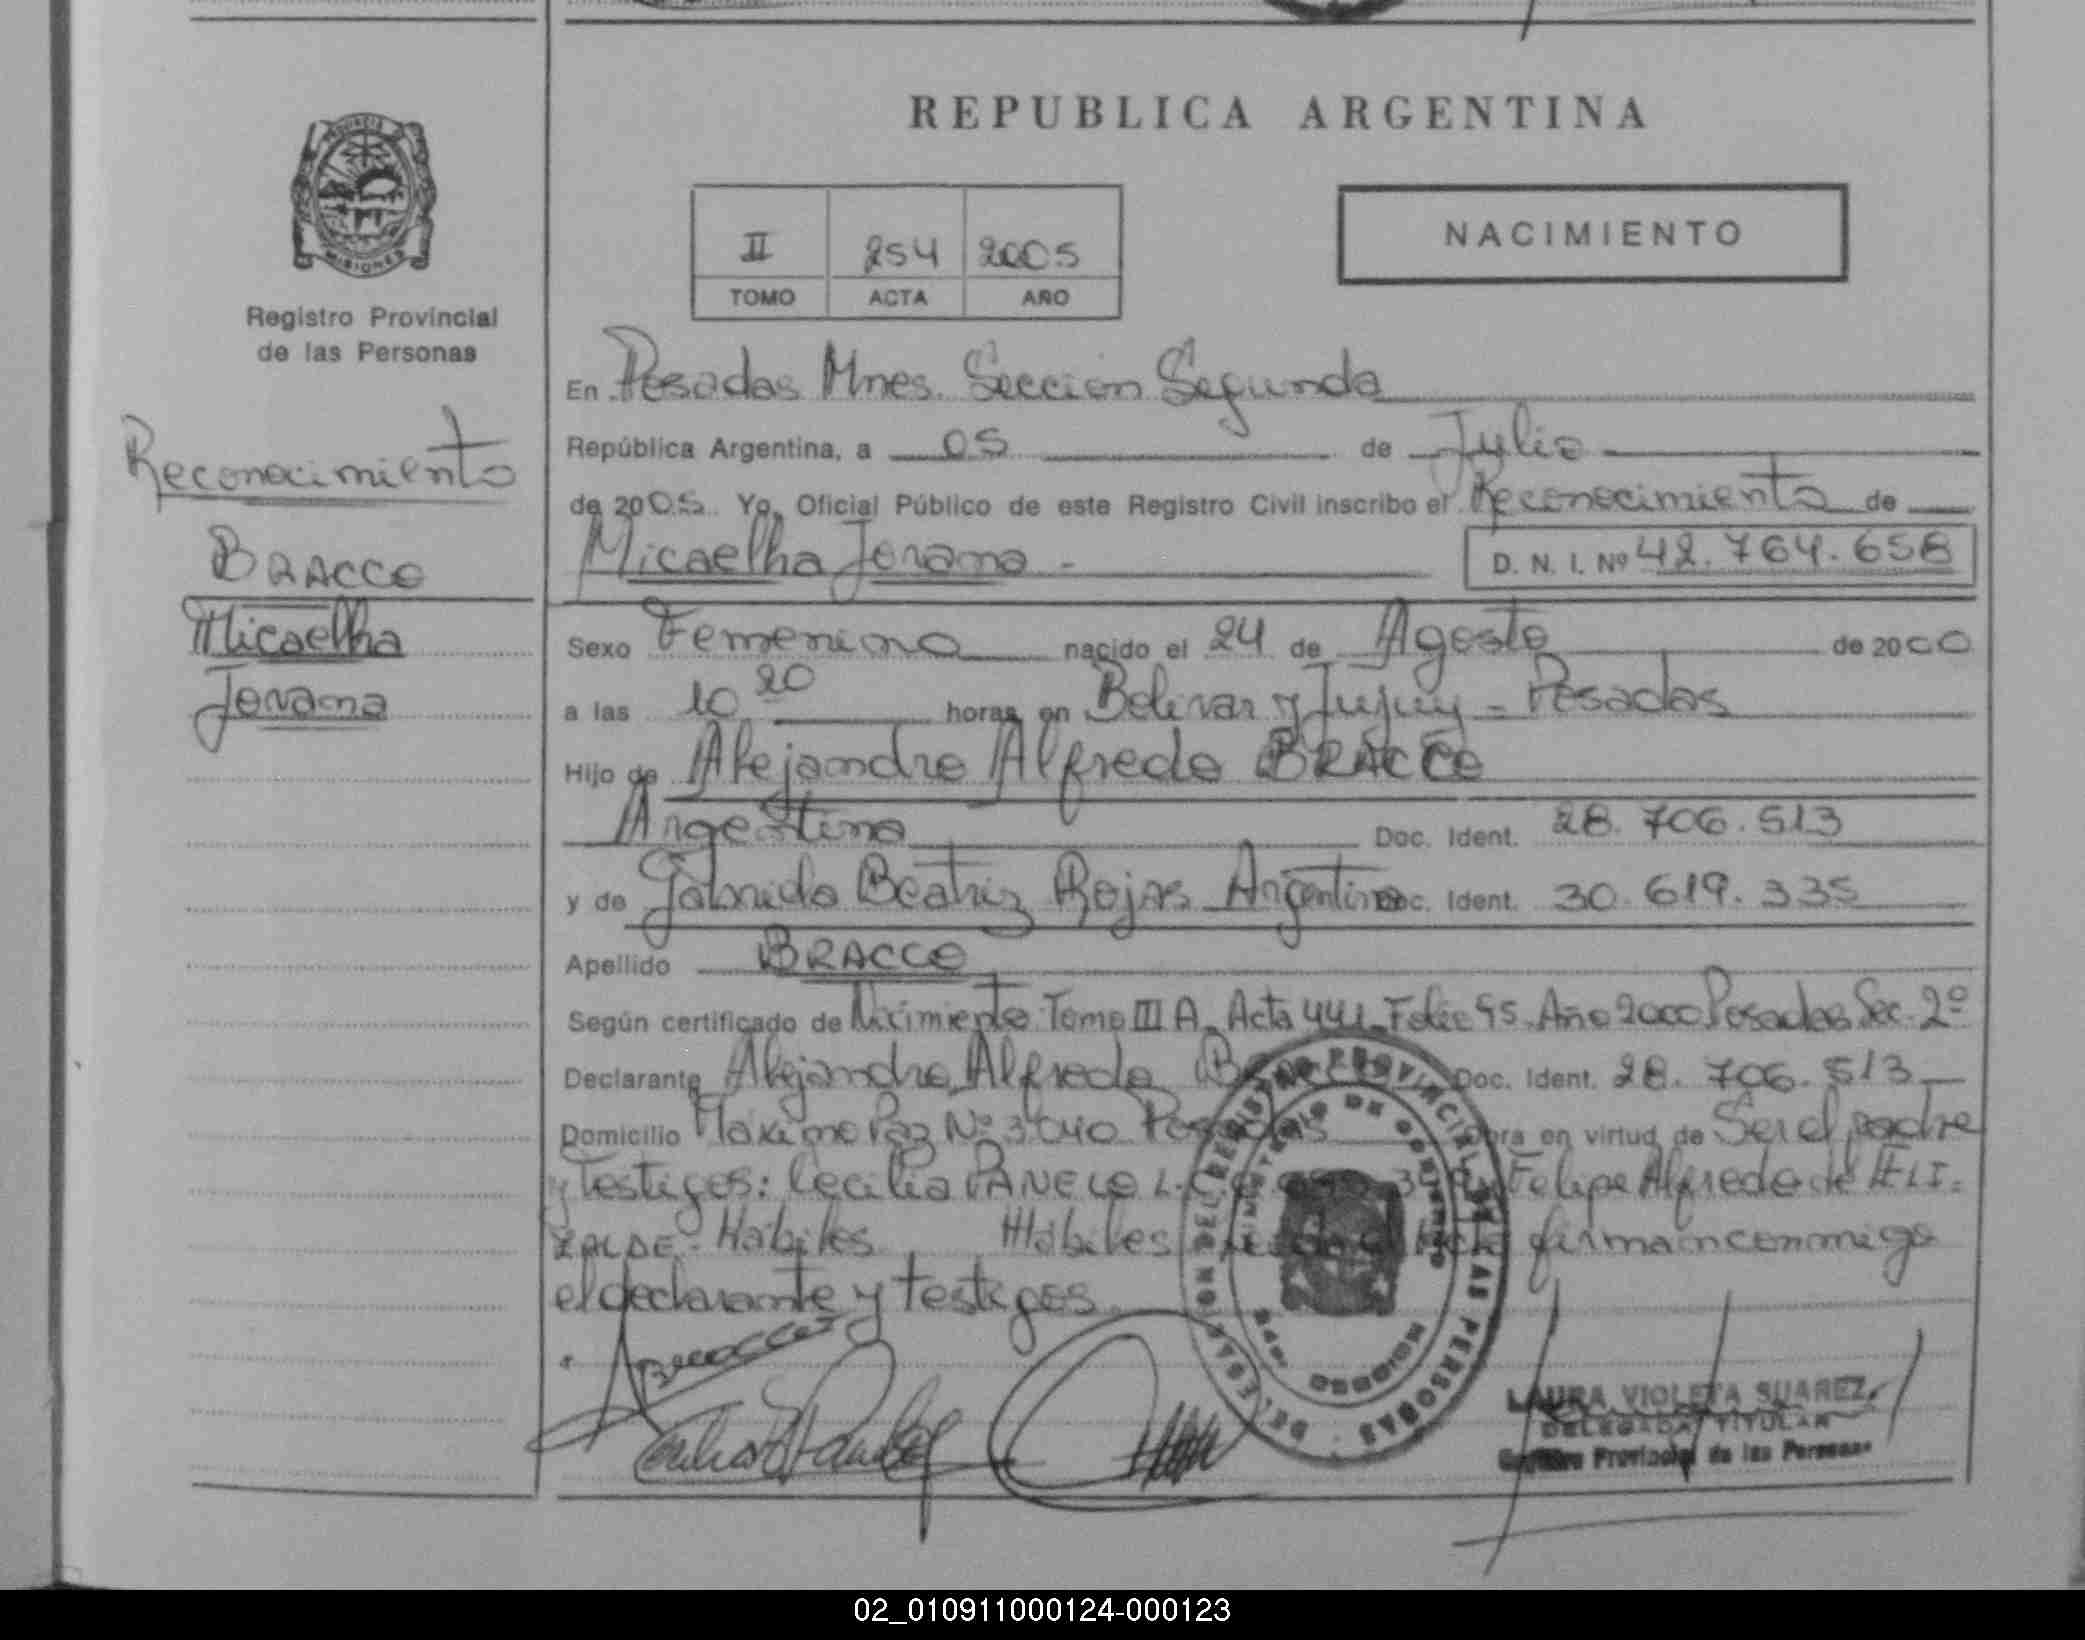 REPUBLICA ARGENTINA
PROVINCIA DE
MISIONES
Registro Provincial
de las Personas
II 254 2005
TOMO ACTA AÑO
NACIMIENTO
Reconocimiento
BRACCO
Micaelha
Jorama
En Posadas Mnes. Seccion Segunda
República Argentina, a 05 de Julio
de 2005. Yo, Oficial Público de este Registro Civil inscribo el Reconocimiento de
Micaelha Jorama - D. N. I. Nº 42.764.658
Sexo Femenino nacido el 24 de Agosto de 2000
a las 10 20 horas en Bolivar y Jujuy - Posadas
Hijo de Alejandro Alfredo BRACCO
Argentino Doc. Ident. 28.706.513
y de Gabriela Beatriz Rojas Argentina Doc. Ident. 30.619.335
Apellido BRACCO
Según certificado de Nacimiento Tomo III A. Acta 441 Folio 95 Año 2000 Posadas Sec. 2º
Declarante Alejandro Alfredo Doc. Ident. 28.706.513
Domicilio Maximo Paz Nº 3040 Posadas Obra en virtud de Ser el padre
y Testigos: Cecilia PANELO L.C. Felipe Alfredo de ELI-
ZALDE - Habiles Habiles firman conmigo
el declarante y testigos.
DELEGACION DEL REGISTRO PROVINCIAL DE LAS PERSONAS
MINISTERIO DE GOBIERNO
MISIONES
LAURA VIOLETA SUAREZ
DELEGADA TITULAR
Registro Provincial de las Personas
02_010911000124-000123